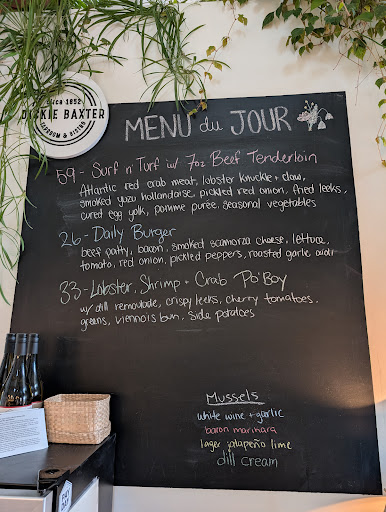 circa 1852
DICKIE BAXTER
TAPROOM & DINING
MENU du JOUR
59- Surf n' Turf w/ 7oz Beef Tenderloin
Atlantic red crab meat, lobster knuckle + claw,
smoked yuzu hollandaise, pickled red onion, fried leeks,
cured egg yolk, pomme purée, seasonal vegetables
26- Daily Burger
beef patty, bacon, smoked scamorza cheese, lettuce,
tomato, red onion, pickled peppers, roasted garlic aioli
33- Lobster, Shrimp + Crab Po'Boy
w/ dill remoulade, crispy leeks, cherry tomatoes,
greens, viennois bun, side potatoes
Mussels
white wine + garlic
bacon marinara
lager jalapeño lime
dill cream